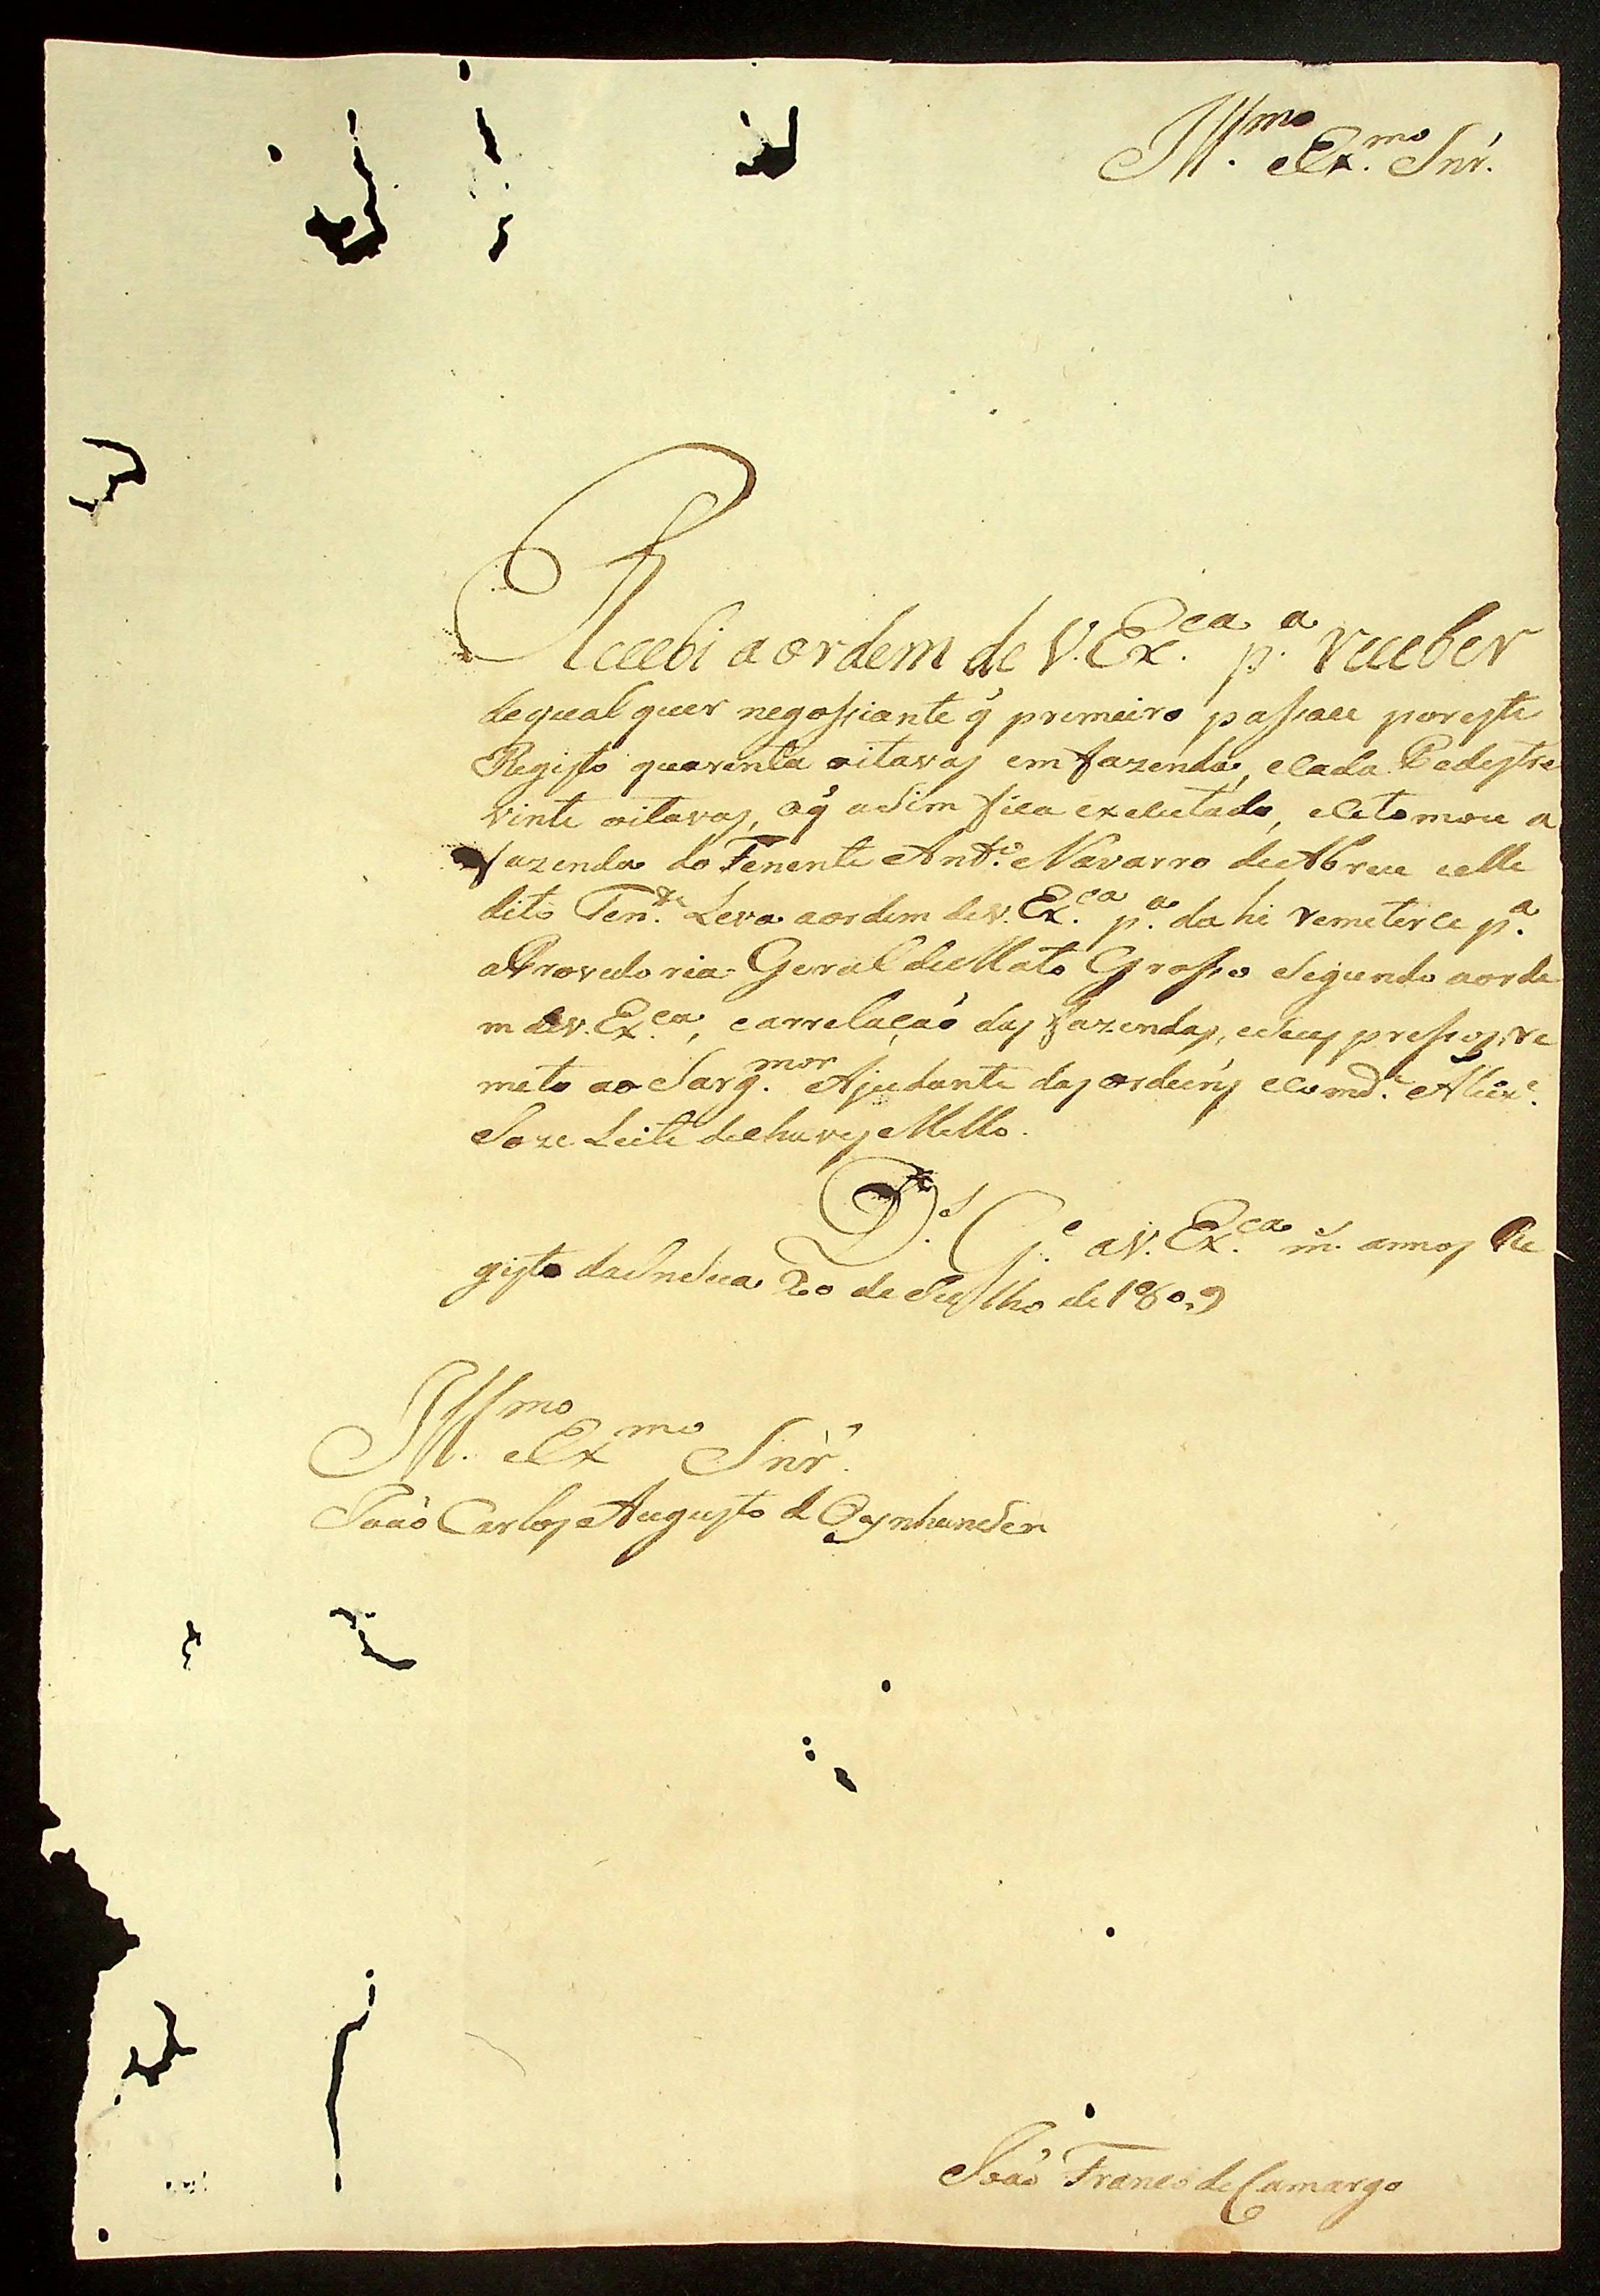 Ill.mo e Ex.mo Snr.
Recebi a ordem de V. Ex.ca p.a receber
de qual quer negossiante q̃ primeiro passace por este
Registo quarenta oitavas em fazenda, e cada Pedestre
vinte oitavas, o q̃ asim fica executado, e se tomou a
fazenda do Tenente Ant.o Navarro de Abreu e elle
dito Ten.te Leva a ordem de V. Ex.ca p.a da hi remeterce p.a
a Provedoria Geral de Mato Grosso segundo a orde
m de V. Ex.ca, e a rrelação das fazendas, e seus pressos, re
meto ao Sarg.mor Ajudante das ordeńs e Comd.e
Joze Leite de chaves e Mello.
D.s G.e a V. Ex.ca m. annos Re
gisto da Insua 20 de Julho de 1809
Ill.mo e Ex.mo Snr.
João Carlos Augusto d Oynhunsen
João Franco de Camargo